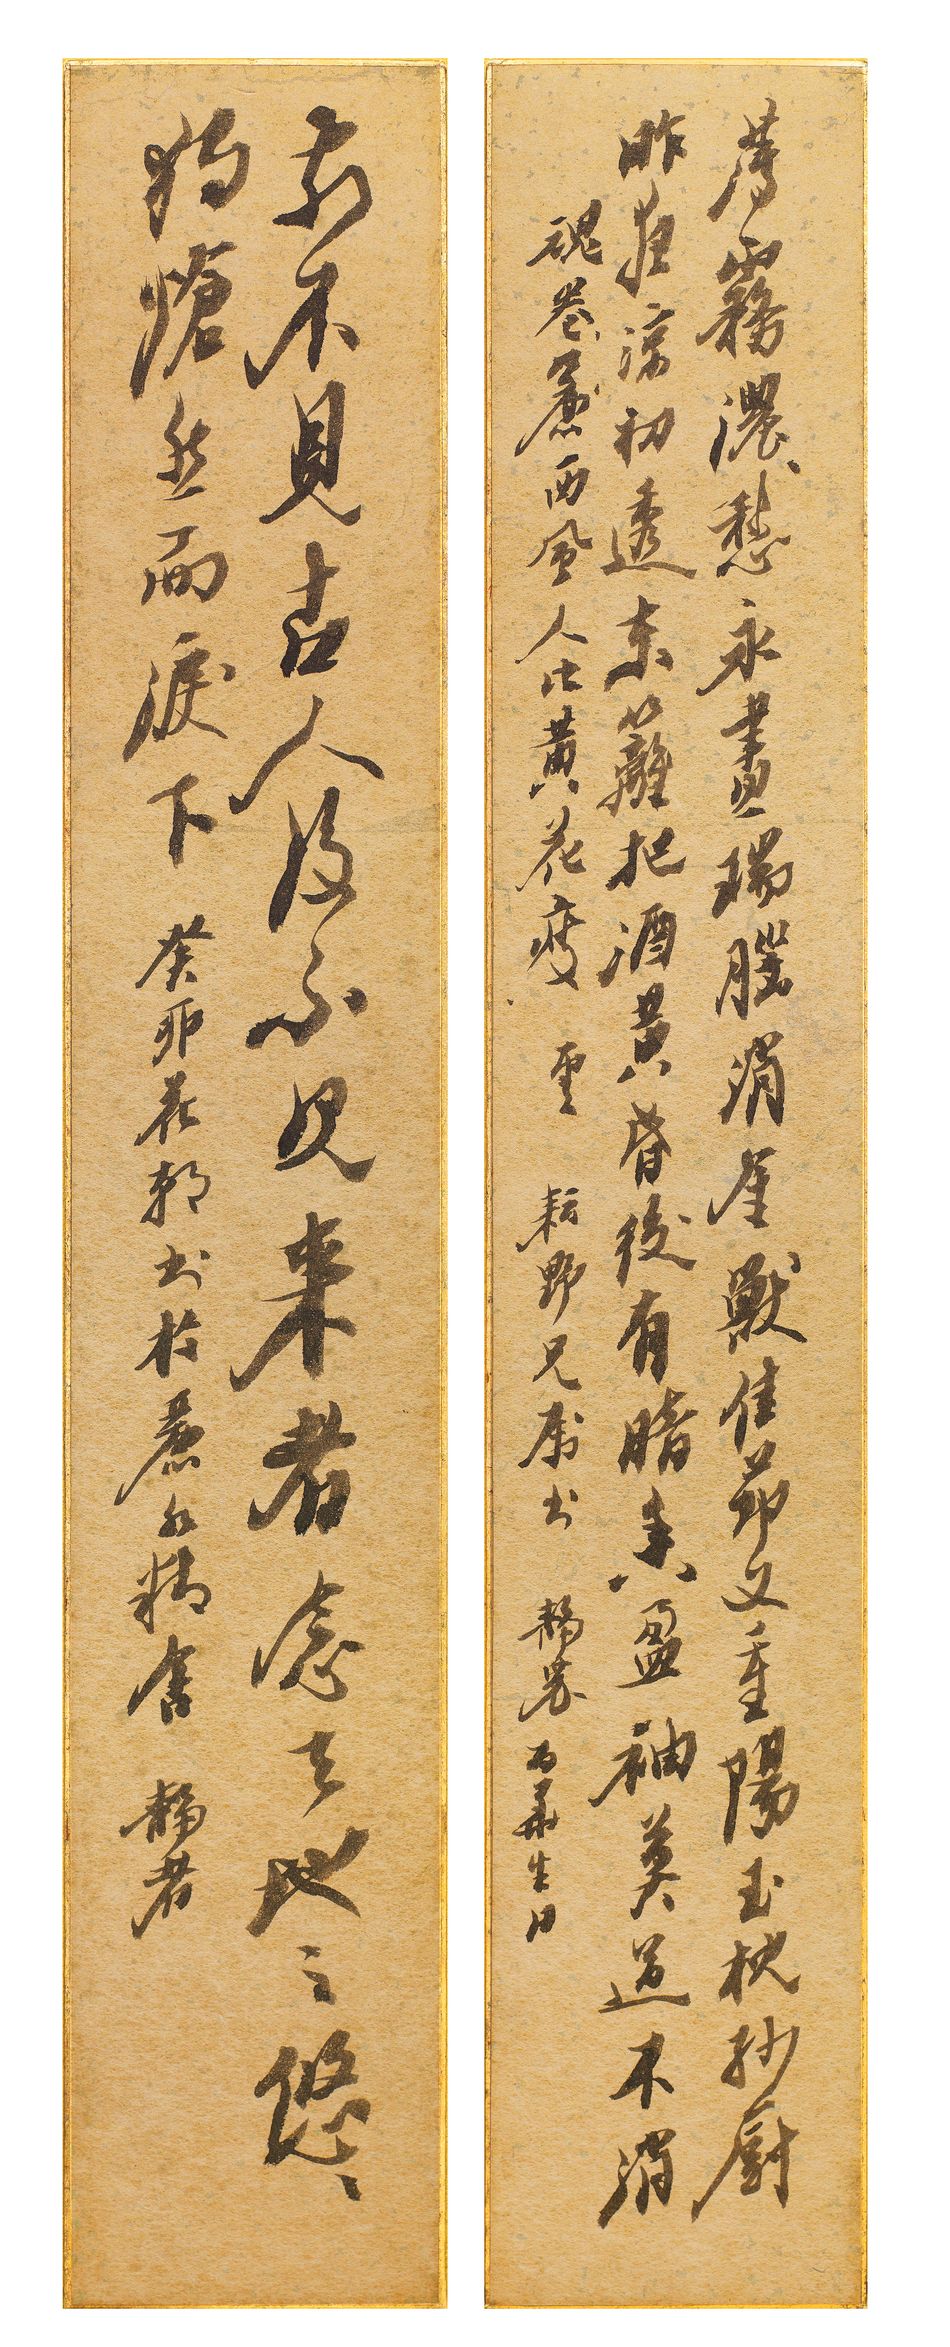 薄霧濃愁永晝瑞腦消金獸佳節又重陽玉枕紗廚
昨夜涼初透東籬把酒黃昏後有暗香盈袖莫道不消
魂卷簾西風人比黃花瘦 耘野兄屬書 靜農 百華生日
前不見古人後不見來者念天地之悠々
獨愴然而淚下 癸卯花朝書於精舍 靜者